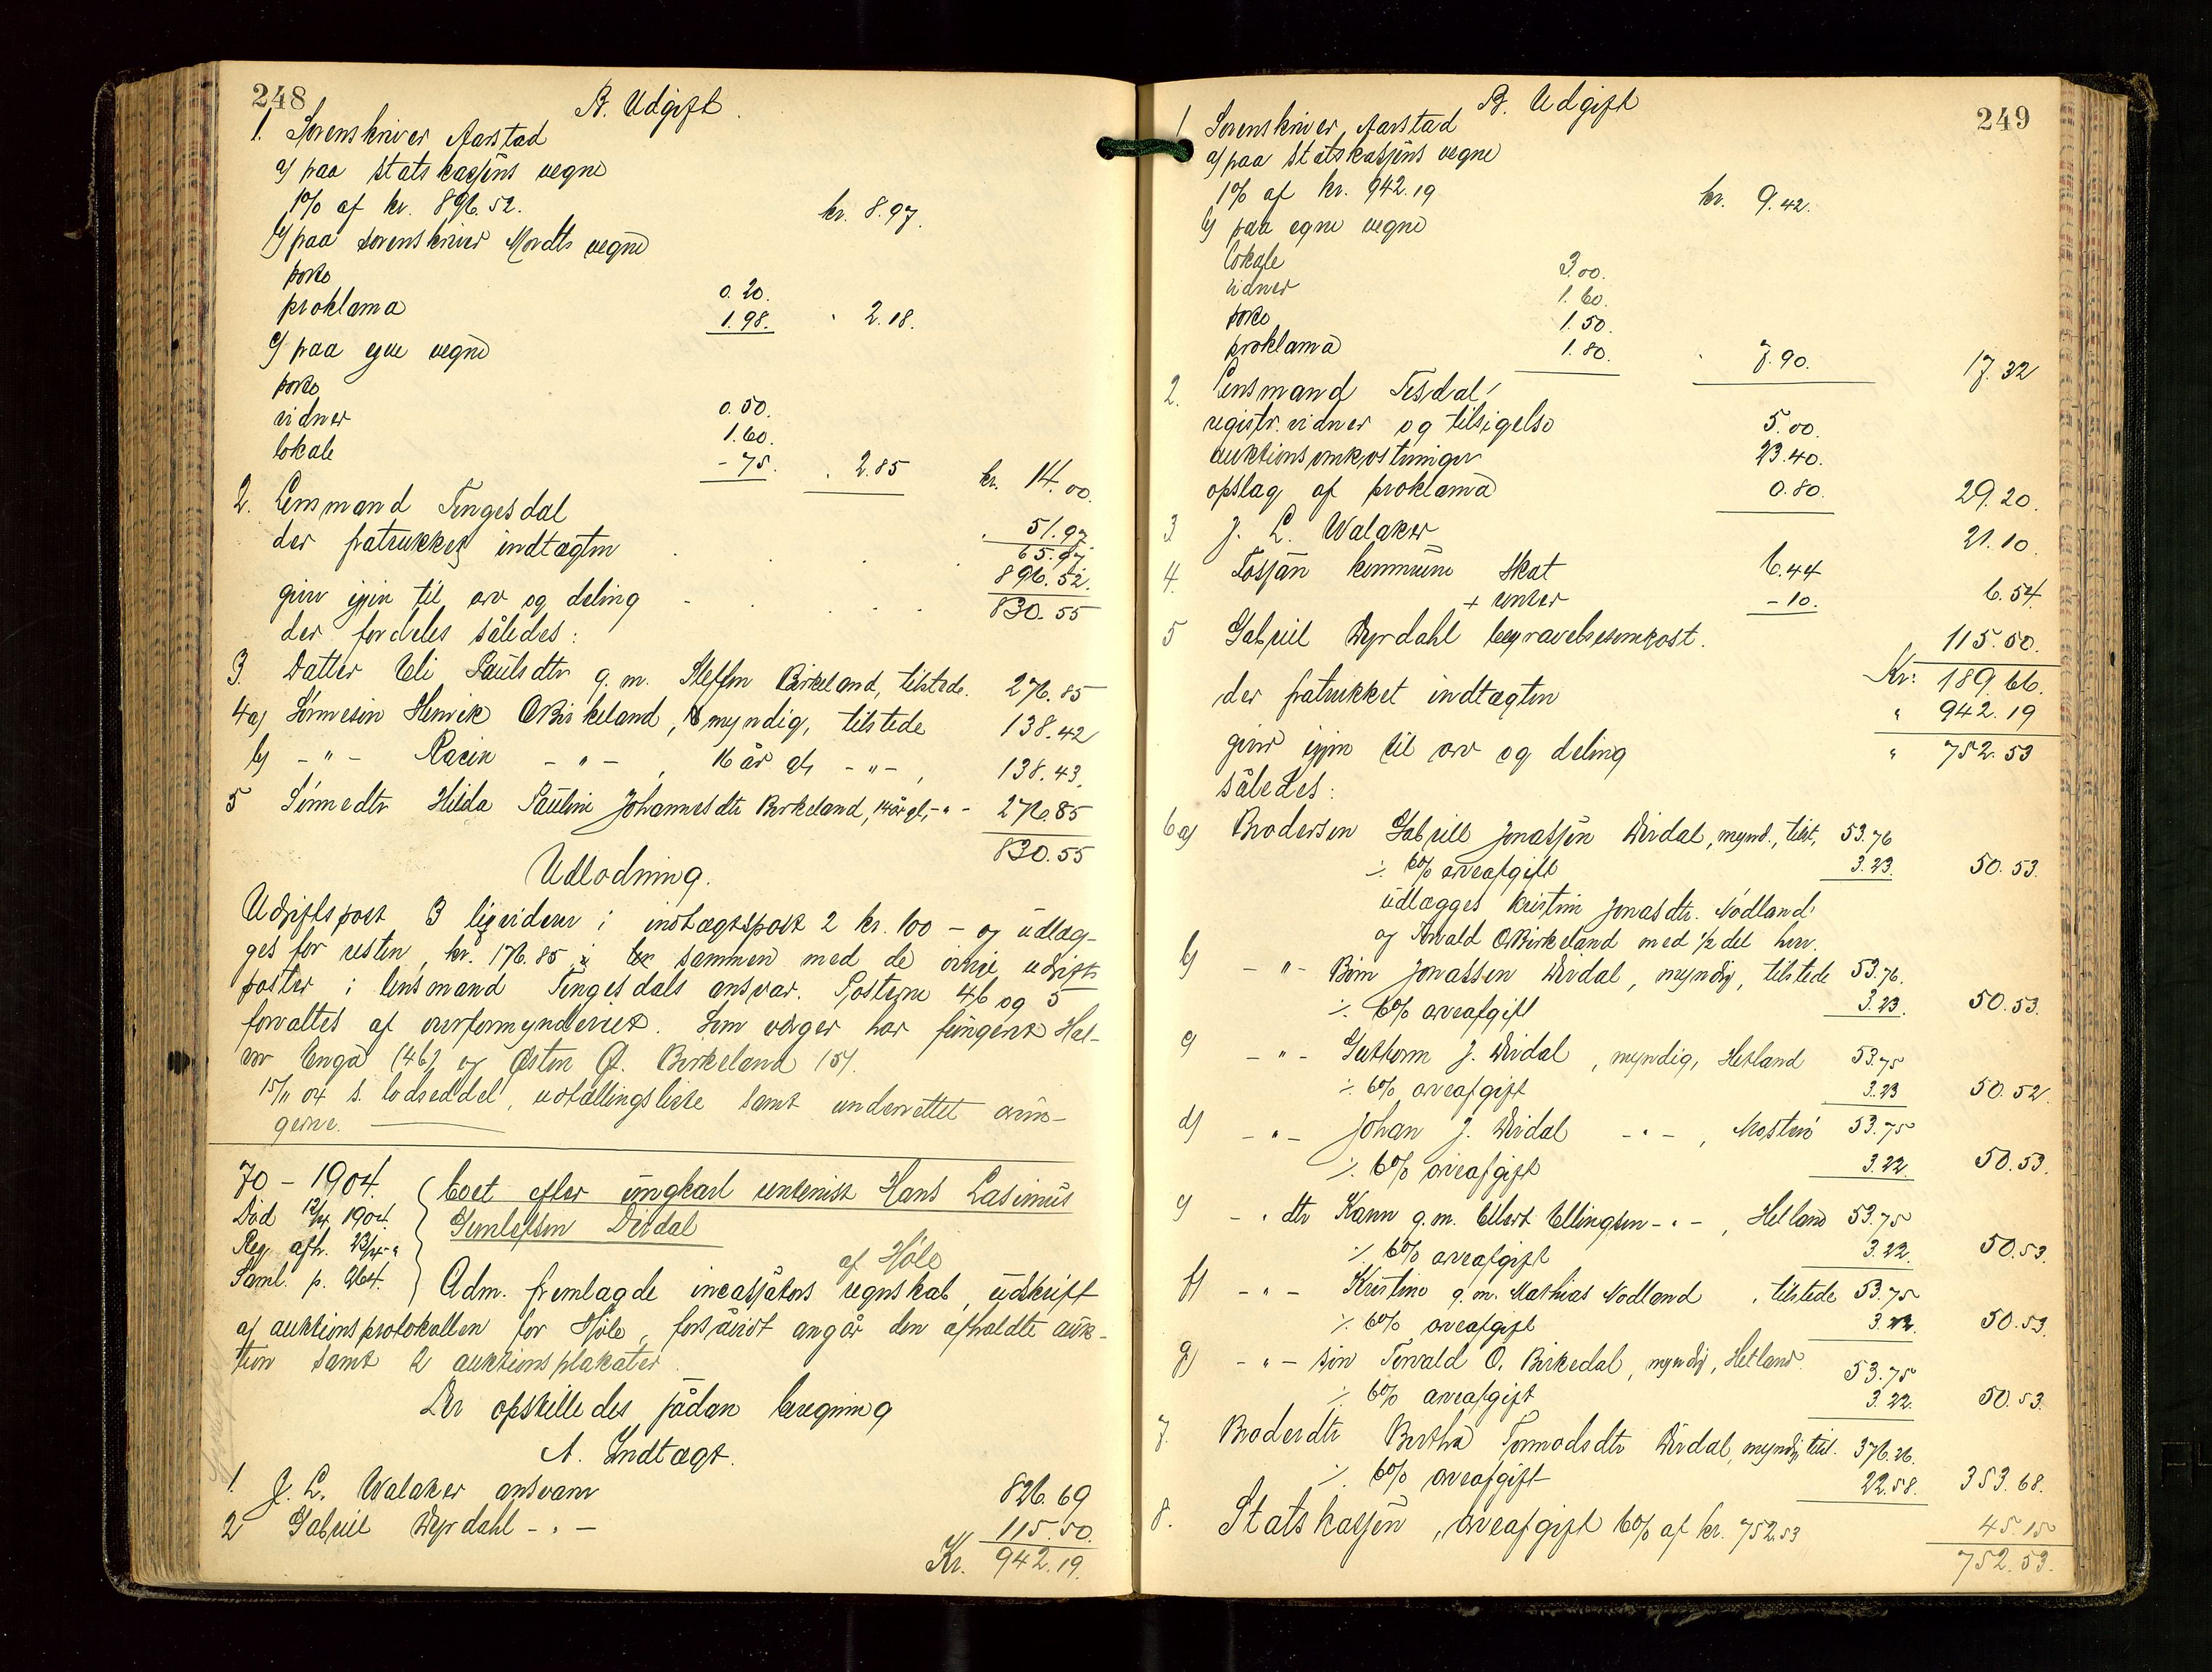 248
B. Udgift.
1. Sorenskriver Aarstad
a) paa statskassens vegne
1% af kr. 896.52. kr. 8.97.
b) paa sorenskriver Mordts vegne
porto 0.20.
proklama 1.98. " 2.18.
c) paa egne vegne
porto 0.50.
vidner 1.60.
lokale - 75. " 2.85 kr. 14.00.
2. Lensmand Tengesdal " 51.97
65.97
der fratrukket indtægten 896.52.
giver igjen til arv og deling 830.55
der fordeles således:
3. Datter Eli Paulsdtr g. m. Steffen Birkeland, tilstede. 276.85
4a) Sønnesøn Henrik O Birkeland, myndig, tilstede 138.42
b) - " - Rasin - " - , 16 år gl. - " - , 138.43.
5 Sønnedtr Hilda Pauline Johannesdtr Birkeland, 14 år gl, - " - 276.85
830.55
Udlodning.
Udgiftspost 3 likviderer i indtægtspost 2 kr. 100 - og udlæg-
ges for resten, kr. 176.85, sammen med de øvrige udgifts
poster i lensmand Tengesdals ansvar. Posterne 4b og 5
forvaltes af overformynderiet. Som værger har fungert Hal-
vor Engå (4b) og Østen Ø. Birkeland (5).
15/11 04 s. lodseddel, udtællingsliste samt underrettet arvin-
gerne.
70 - 1904.
Død 12/4 1904.
Reg. afh. 23/4 - "
Saml. p. 264.
boet efter ungkarl rentenist Hans Lasimus
Gunleksen Dirdal
af Høle
Adm. fremlagde incassators regnskab, udskrift
af auktionsprotokollen for Høle, forsåvidt angår den afholdte auk-
tion samt 2 auktionsplakater.
Der opstilledes sådan beregning
A. Indtægt.
1. J. L. Walaker ansvarer 826.69
2 Gabriel Dyrdahl - " - 115.50.
Kr. 942.19.
249
B. Udgift
1 Sorenskriver Aarstad
a) paa statskassens vegne
1% af kr. 942.19 kr. 9.42.
b) paa egne vegne
lokale 3.00.
vidner 1.60.
porto 1.50.
proklama 1.80. " 7.90. 17.32
2. Lensmand Tesdal
registr. vidner og tilsigelse 5.00.
auktionsomkostninger 23.40.
opslag af proklama 0.80. 29.20.
3 J. L. Walaker 21.10.
4. Fossan kommune skat 6.44
+ renter - 10. 6.54
5 Gabriel Dyrdahl begravelsesomkost. 115.50.
Kr: 189.66.
der fratrukket indtægten " 942.19
giver igjen til arv og deling " 752.53
således:
6a) Brodersøn Gabriel Jonassen Dirdal, mynd., tilst, 53.76
÷ 6% arveafgift 3.23. 50.53.
udlægges Kristine Jonasdtr. Nødland
og Torvald O Birkeland med 1/2 del hver.
b) - " - Bøin Jonassen Dirdal, myndig, tilstede 53.76.
÷ 6% arveafgift 3.23. 50.53.
c) - " - Guthorm J. Dirdal, myndig, Hetland 53.75
÷ 6% arveafgift 3.23 50.52.
d) - " - Johan J. Dirdal - " - , Mosterø 53.75
÷ 6% arveafgift 3.22. 50.53.
e) - " dtr Karen g. m. Ellert Ellingsen - " - , Hetland 53.75
÷ 6% arveafgift 3.22. 50.53.
f) - " - Kristine g. m. Mathias Nødland , tilstede 53.75
÷ 6% arveafgift 3.22. 50.53.
g) - " - søn Torvald O. Birkedal, myndig, Hetland 53.75
÷ 6% arveafgift 3.22. 50.53.
7. Broderdtr Bertha Tormodsdtr Dirdal, myndig, tilst. 376.26.
÷ 6% arveafgift 22.58. 353.68.
8. Statskassen, arveafgift 6% af kr. 752.53 45.15
752.53.